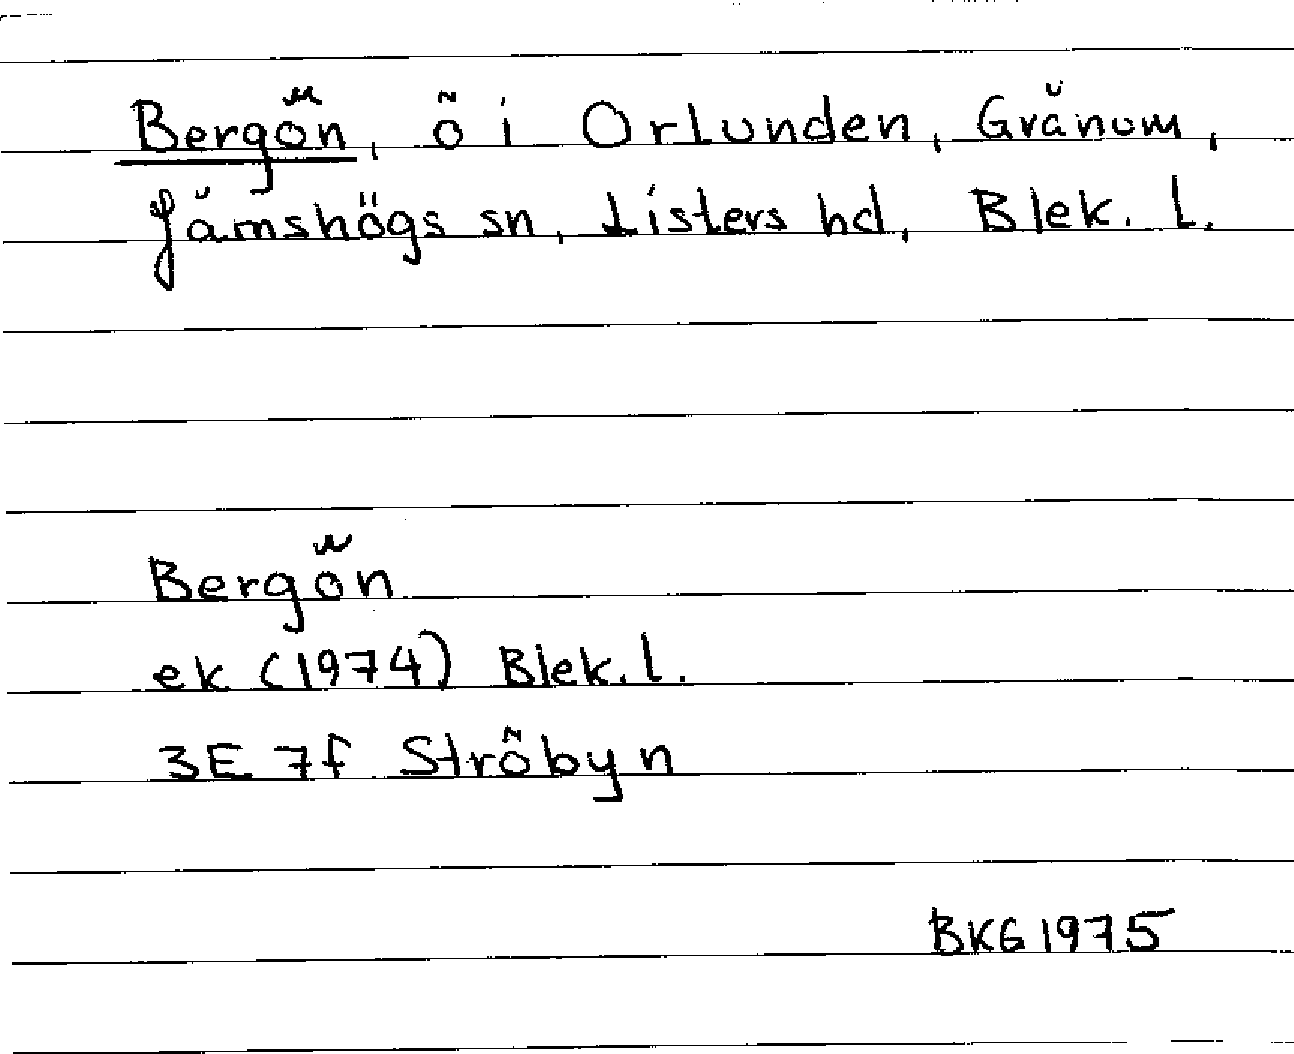 Bergön, ö i Orlunden, Gränum,
Jämshögs sn, Listers hd, Blek. l.
Bergön
ek (1974) Blek. l.
3E 7f Ströbyn
BKG 1975